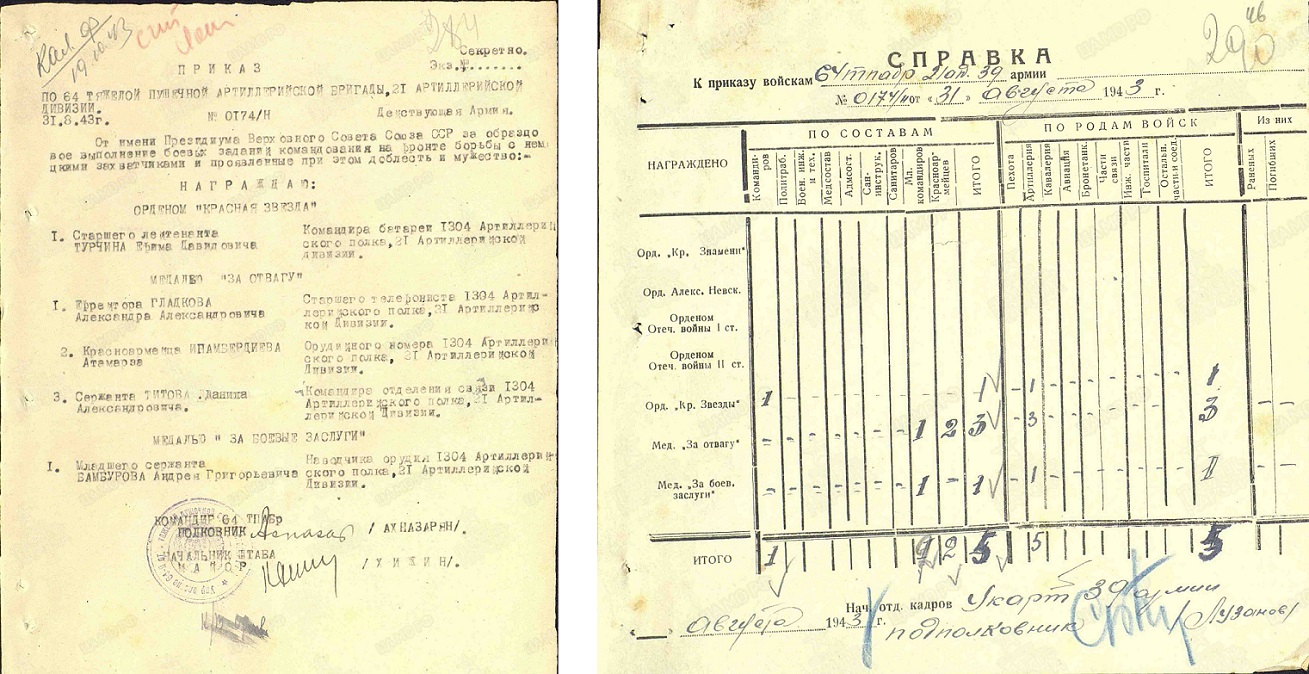 284
Кал 92
19.10.43
Секретно.
Экз.№.......
ПРИКАЗ
ПО 64 ТЯЖЕЛОЙ ПУШЕЧНОЙ АРТИЛЛЕРИЙСКОЙ БРИГАДЫ,2I АРТИЛЛЕРИЙСКОЙ
ДИВИЗИИ.
3I.8.43г. № 0I74/Н Действующая Армия.
От имени Президиума Верховного Совета Союза ССР за образцо
вое выполнение боевых заданий командования на фронте борьбы с неме
цкими захватчиками и проявленные при этом доблесть и мужество:-
НАГРАЖДАЮ:
ОРДЕНОМ "КРАСНАЯ ЗВЕЗДА"
I. Старшего лейтенанта
ТУРЧИНА Ефима Давидовича
Командира батареи I304 Артиллерий
ского полка,2I Артиллерийской
дивизии.
МЕДАЛЬЮ "ЗА ОТВАГУ"
I. Ефрейтора ГЛАДКОВА
Александра Александровича
Старшего телефониста I304 Артил-
лерийского полка,2I Артиллерийс
кой Дивизии.
2. Красноармейца ИПАМБЕРДИЕВА
Атамараза
Орудийного номера I304 Артиллерий
ского полка, 2I Артиллерийской
Дивизии.
3. Сержанта ТИТОВА Даниила
Александровича.
Командира отделения связи I304
Артиллерийского полка,2I Артил-
лерийской Дивизии.
МЕДАЛЬЮ " ЗА БОЕВЫЕ ЗАСЛУГИ"
I. Младшего сержанта
БАМБУРОВА Андрея Григорьевича
Наводчика орудия I304 Артиллерий
ского полка,2I Артиллерийской
Дивизии.
КОМАНДИР 64 ТПАБр
ПОЛКОВНИК / АХНАЗАРЯН/.
НАЧАЛЬНИК ШТАБА
МАЙОР / ХИЖИН/.
46
290
СПРАВКА
К приказу войскам 64 тпабр 21 ад. 39 армии
№ 0174/н от « 31 » Августа 1943 г.
НАГРАЖДЕНО
ПО СОСТАВАМ
ПО РОДАМ ВОЙСК
Из них
Команди-ров
Политраб.
Воен. инж. и тех.
Медсостав
Адмсост.
Сан-инструк.
Санитаров
Мл. командиров
Красноар-мейцев
ИТОГО
Пехота
Артиллерия
Кавалерия
Авиация
Бронетанк.
Части связи
Инж. части
Госпитали
Остальн. части и соед.
ИТОГО
Раненых
Погибших
Орд. „Кр. Знамени"
Орд. Алекс. Невск.
Орденом
Отеч. войны I ст.
Орденом
Отеч. войны II ст.
Орд. „Кр. Звезды" 1 1 1 1
Мед. „За отвагу" 1 2 3 3 3
Мед. „За боев.
заслуги" 1 1 1 1
ИТОГО 1 2 2 5 5 5
Нач. отд. кадров Укарт 39 армии
Августа 1943 г. подполковник /Лузанов/